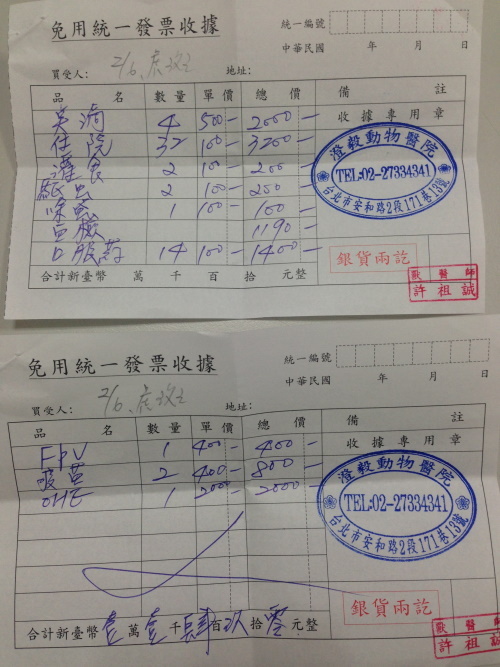 免用統一發票收據
統一編號
中華民國 年 月 日
買受人: 2/6 地址:
品 名 數量 單價 總價 備 註
4 500- 2000-
收據專用章
住院 32 100- 3200-
灌食 2 100- 200-
驅蟲 2 100- 200-
除蚤 1 100- 100-
血檢 1190-
口服药 14 100- 1400-
澄毅動物醫院
TEL:02-27334341
台北市安和路2段171巷13號
銀貨兩訖
獸醫師
許祖誠
合計新臺幣 萬 千 百 拾 元整
免用統一發票收據
統一編號
中華民國 年 月 日
買受人: 2/6 地址:
品 名 數量 單價 總價 備 註
FPV 1 400- 400-
收據專用章
2 400- 800-
OHE 1 2000- 2000-
澄毅動物醫院
TEL:02-27334341
台北市安和路2段171巷13號
銀貨兩訖
獸醫師
許祖誠
合計新臺幣 壹萬壹千肆百玖拾零元整